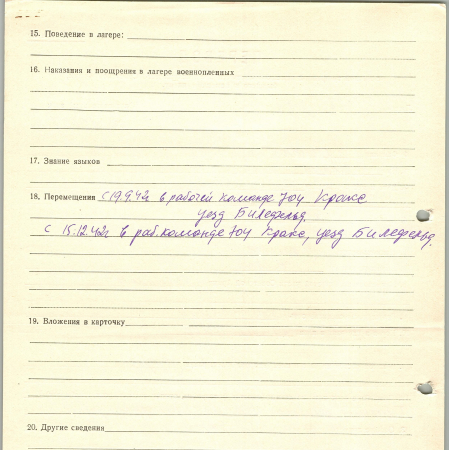 15. Поведение в лагере:
16. Наказания и поощрения в лагере военнопленных
17. Знание языков
18. Перемещения с 19.9.42г в рабочей команде 704 Кракс
уезд Билефельд.
с 15.12.42г в раб.команде 704 Кракс, уезд Билефельд.
19. Вложения в карточку
20. Другие сведения